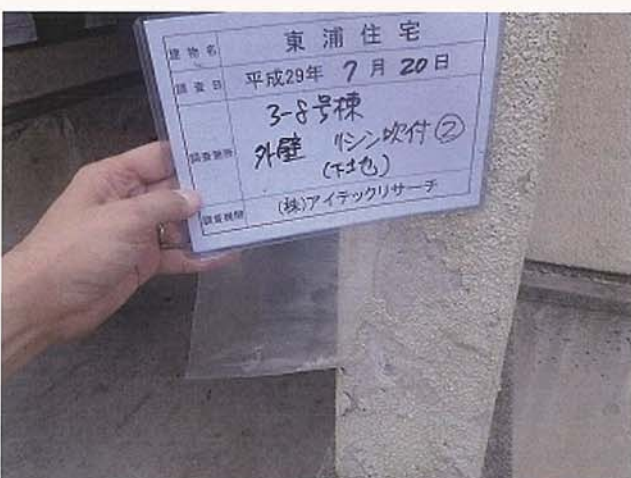 建物名 東浦住宅
調査日 平成29年 7月20日
3-8号棟
調査箇所 外壁 リシン吹付②
(下地)
調査機関 (株)アイテックリサーチ